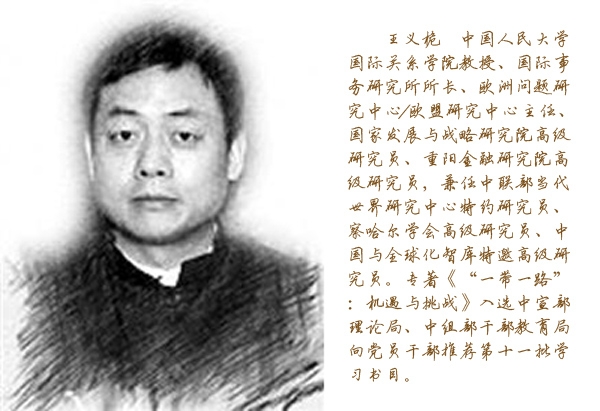 王义桅 中国人民大学
国际关系学院教授、国际事
务研究所所长、欧洲问题研
究中心/欧盟研究中心主任、
国家发展与战略研究院高级
研究员、重阳金融研究院高
级研究员，兼任中联部当代
世界研究中心特约研究员、
察哈尔学会高级研究员、中
国与全球化智库特邀高级研
究员。专著《“一带一路”
：机遇与挑战》入选中宣部
理论局、中组部干部教育局
向党员干部推荐第十一批学
习书目。